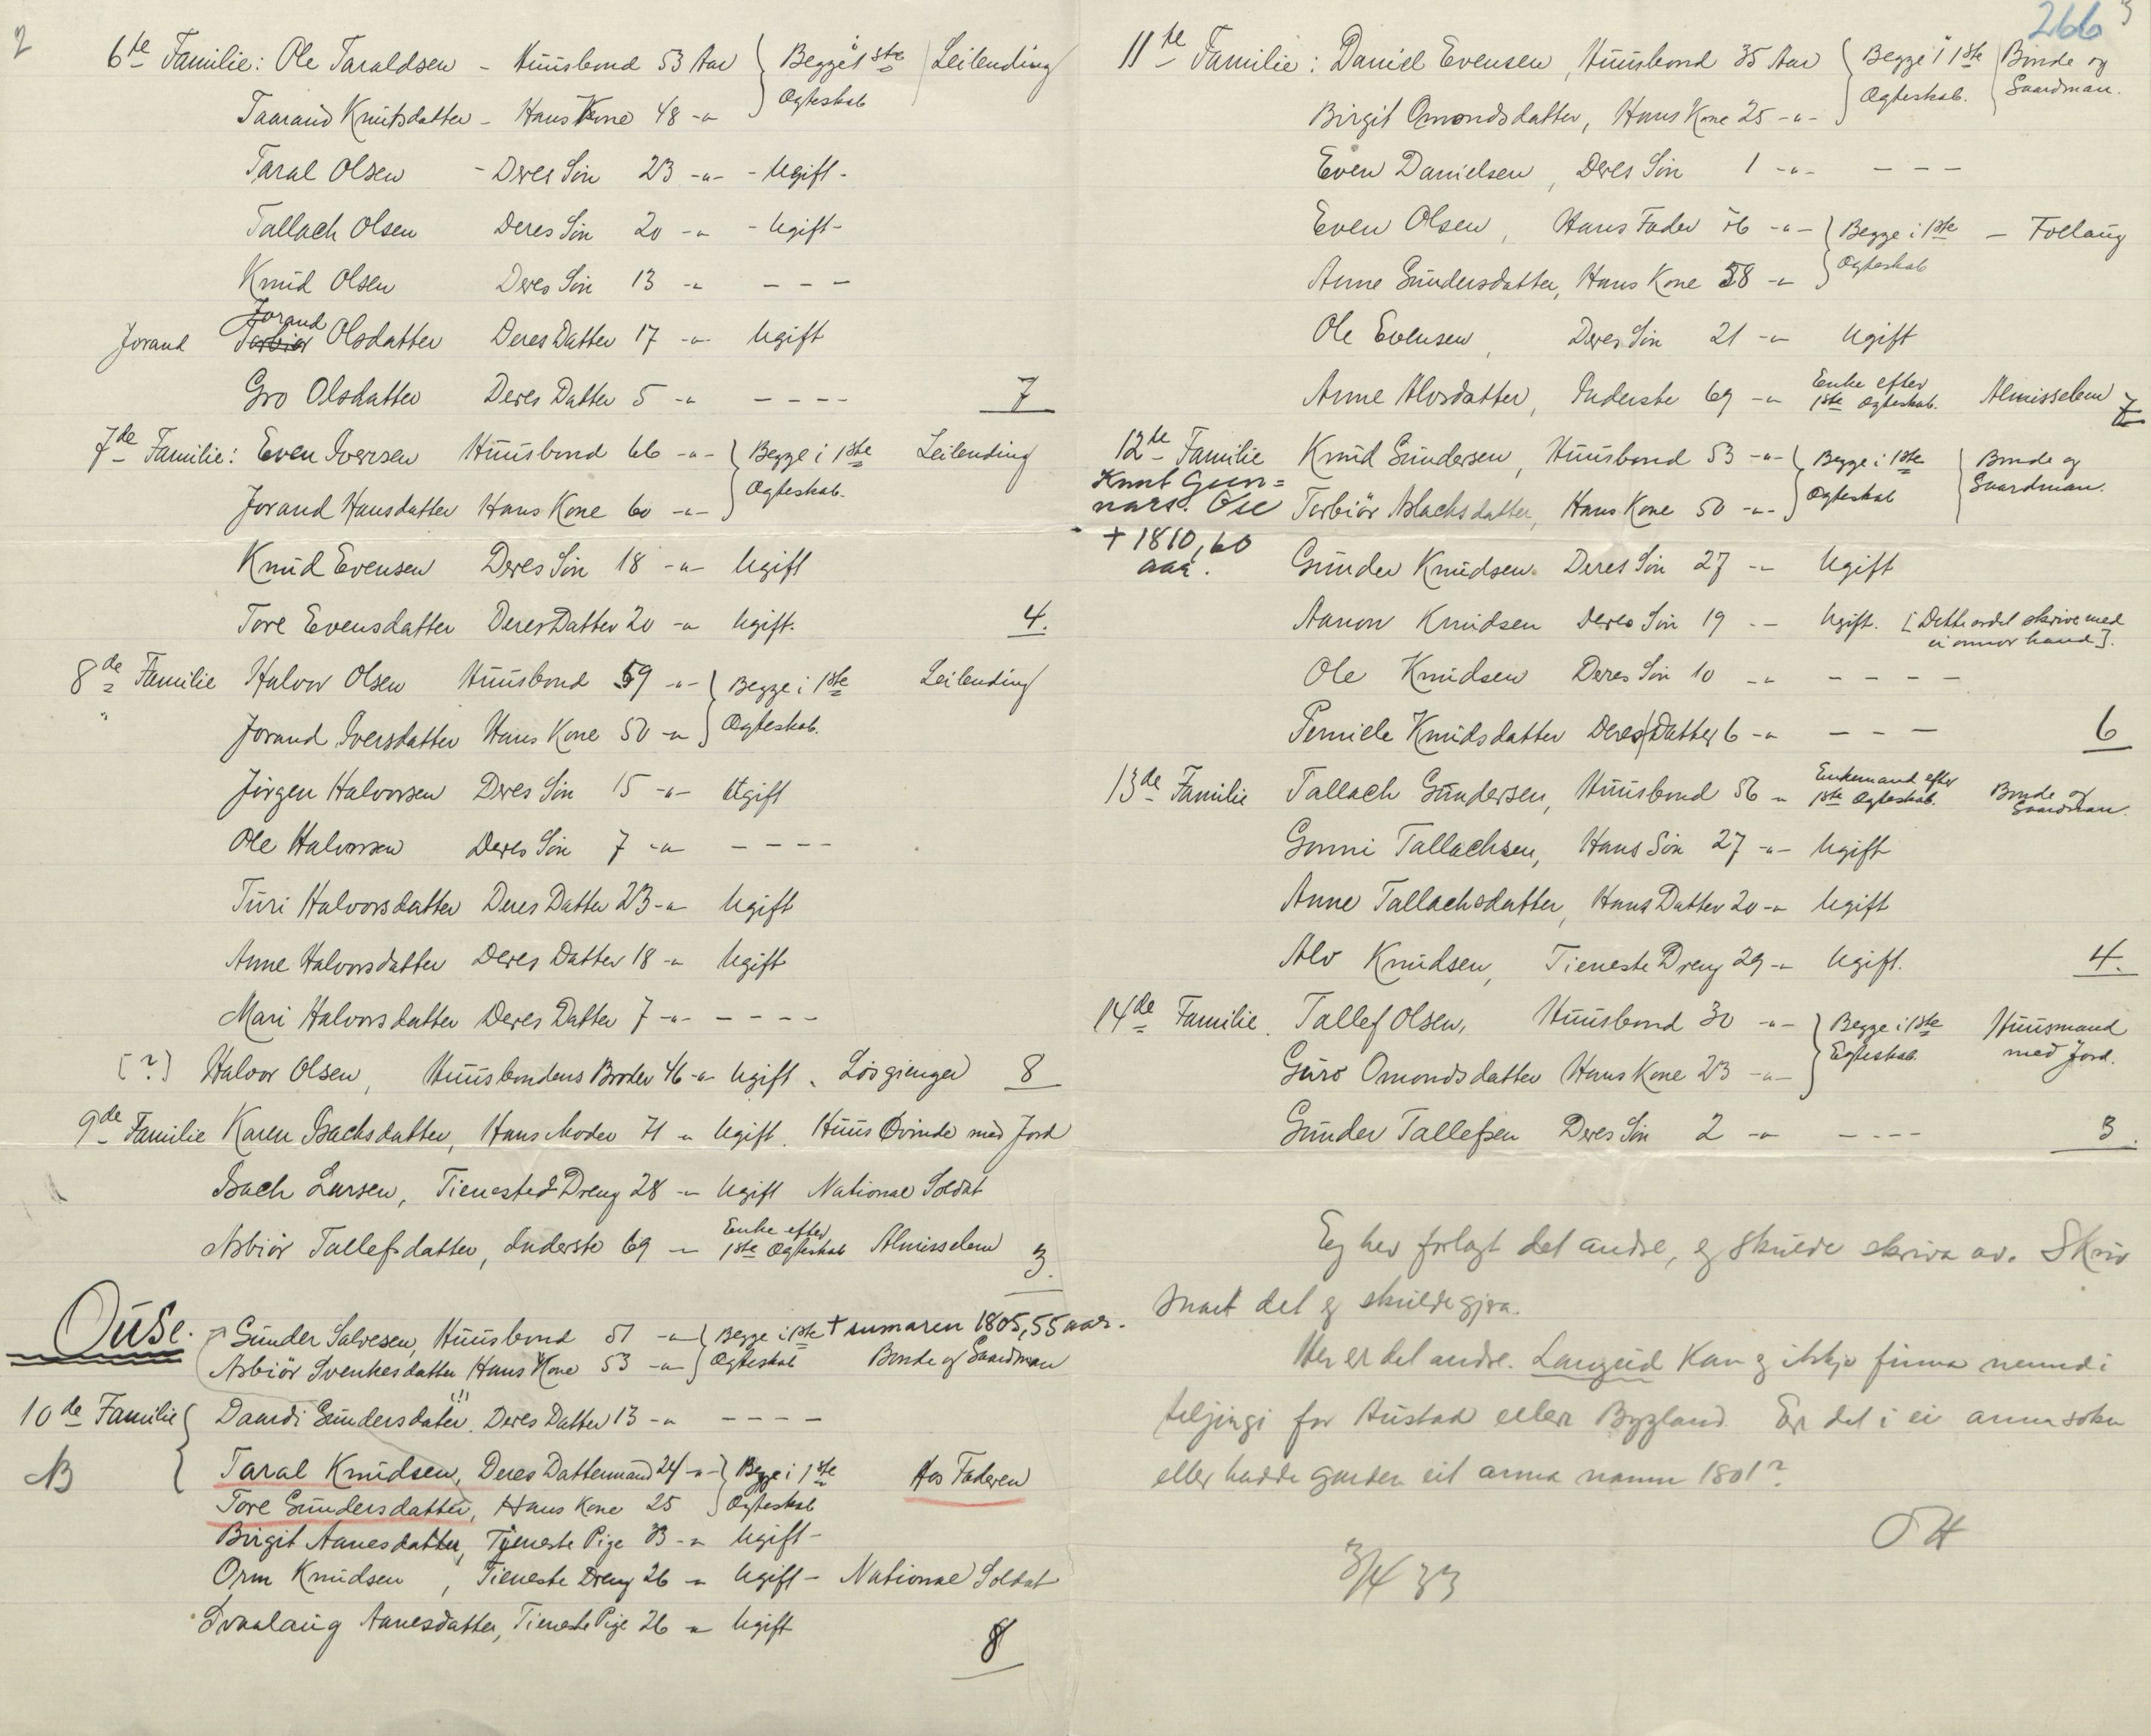 2
6te Familie: Ole Taraldsen - Huusbond 53 Aar Begge i 1ste Leilending
Ogteskab
Taarand Knutsdatter - Hans Kone 48 -"
Taral Olsen - Deres Sön 23 -"- - Ugift -
Tallach Olsen Deres Sön 20 -" - Ugift -
Knud Olsen Deres Sön 13 -" - - -
Jorand
Jorand Torbiör Olsdatter Deres Datter 17 -"- Ugift
Gro Olsdatter Deres Datter 5 -" - - - - 7
7de Familie: Even Iversen Huusbond 66 -"- Begge i 1ste Leilending
Ogteskab.
Jorand Hansdatter Hans Kone 60 -"-
Knud Evensen Deres Sön 18 -"- Ugift
Tore Evensdatter Deres Datter 20 -" Ugift. 4.
8de Familie Halvor Olsen Huusbond 59 -"- Begge i 1ste Leilending
" Jorand Iversdatter Hans Kone 50 -" Ogteskab.
Jörgen Halvorsen Deres Sön 15 -"- Ugift
Ole Halvorsen Deres Sön 7 -" - - - -
Turi Halvorsdatter Deres Datter 23 -" Ugift
Anne Halvorsdatter Deres Datter 18 -" Ugift
Mari Halvorsdatter Deres Datter 7 -"- - - - -
[?] Halvor Olsen, Huusbondens Broder 46 -" Ugift. Lösgienger 8
9de Familie Karen Isachsdatter, Hans Moder 71 " Ugift. Huus Qvinde med Jord
Isach Larsen, Tieneste Dreng 28 -" Ugift National Soldat
Enke efter
Asbiör Tallefsdatter, Inderste 69 -" 1ste Ogteskab Almisselem 3.
Ouse. Gunder Salvesen, Huusbond 51 -" Begge i 1ste + sumaren 1805, 55 aar.
Asbiör Svenkesdatter Hans Kone 53 -" Ogteskab Bonde og Gaardman
(!)
10de Familie Daardi Gundersdater. Deres Datter 13 -" - - - -
NB Taral Knudsen, Deres Dattermand 24 -"- Begge i 1ste Hos Faderen
Tore Gundersdatter, Hans Kone 25 Ogteskab
Birgit Aanesdatter, Tjeneste Pige 33 -" Ugift -
Orm Knudsen, Tieneste Dreng 26 -" Ugift - National Soldat
Svaalaug Aanesdatter, Tieneste Pige 26 -" Ugift
8
266 3
11te Familie: Daniel Evensen, Huusbond 35 Aar Begge i 1ste Bonde og
Ogteskab. Gaardman.
Birgit Omondsdatter, Hans Kone 25 -"-
Even Danielsen, Deres Sön 1 -"- - - -
Even Olsen, Hans Fader 76 -"- Begge i 1ste - Foelaug
Ogteskab
Anne Gundersdatter, Hans Kone 58 -"
Ole Evensen, Deres Sön 21 -" Ugift
Enke efter
Anne Alvsdatter, Inderste 69 -" 1ste Ogteskab. Almisselem 7
12te Familie Knud Gundersen, Huusbond 53 -"- Begge i 1ste Bonde og
Knut Gun=
nars. Öse Torbiör Aslachsdatter, Hans Kone 50 -"- Ogteskab Gaardman.
+ 1810, 60
aar. Gunder Knudsen. Deres Sön 27 -" Ugift
Aanon Knudsen Deres Sön 19 -- Ugift. [Dette ordet skrive med
ei onnor hand].
Ole Knudsen Deres Sön 10 -" - - - -
Perniele Knudsdatter Deres Datter 6 -" - - - 6
Enkemand efter
13de Familie Tallach Gundersen, Huusbond 56 " 1ste Ogteskab. Bonde og
Gaardman.
Gonni Tallachsen, Hans Sön 27 -"- Ugift
Anne Tallachsdatter, Hans Datter 20 -" Ugift
Alv Knudsen, Tieneste Dreng 29 -" Ugift. 4.
14de Familie. Tallef Olsen, Huusbond 30 -"- Begge i 1ste Huusmand
Egteskab. med Jord.
Guro Omondsdatter Hans Kone 23 -"-
Gunder Tallefsen Deres Sön 2 -" - - - - 3.
Eg hev forlagt det andre, eg skulde skriva av. Skriv
snart det eg skulde gjera.
Her er det andre. Langeid kan eg ikkje finna nemnd i
teljingi for Austad eller Bygland. Er det i ei anna sokn
eller hadde garden eit anna namn 1801?
OH
3/4 33